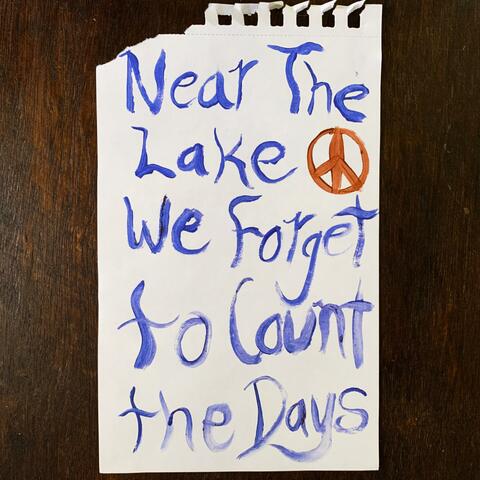 Near The
Lake
We Forget
to Count
the Days